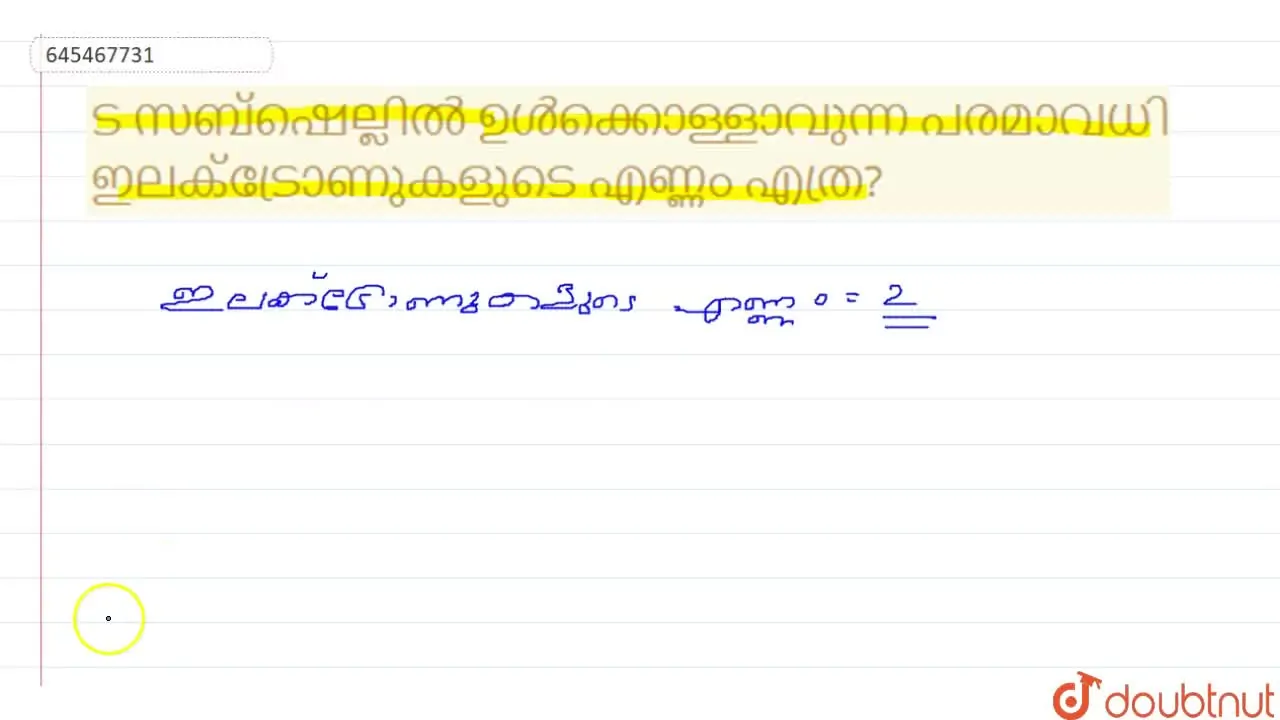 645467731
ട സബ്ഷെല്ലിൽ ഉൾക്കൊള്ളാവുന്ന പരമാവധി
ഇലക്ട്രോണുകളുടെ എണ്ണം എത്ര?
ഇലക്ട്രോണുകളുടെ എണ്ണം = 2
doubtnut